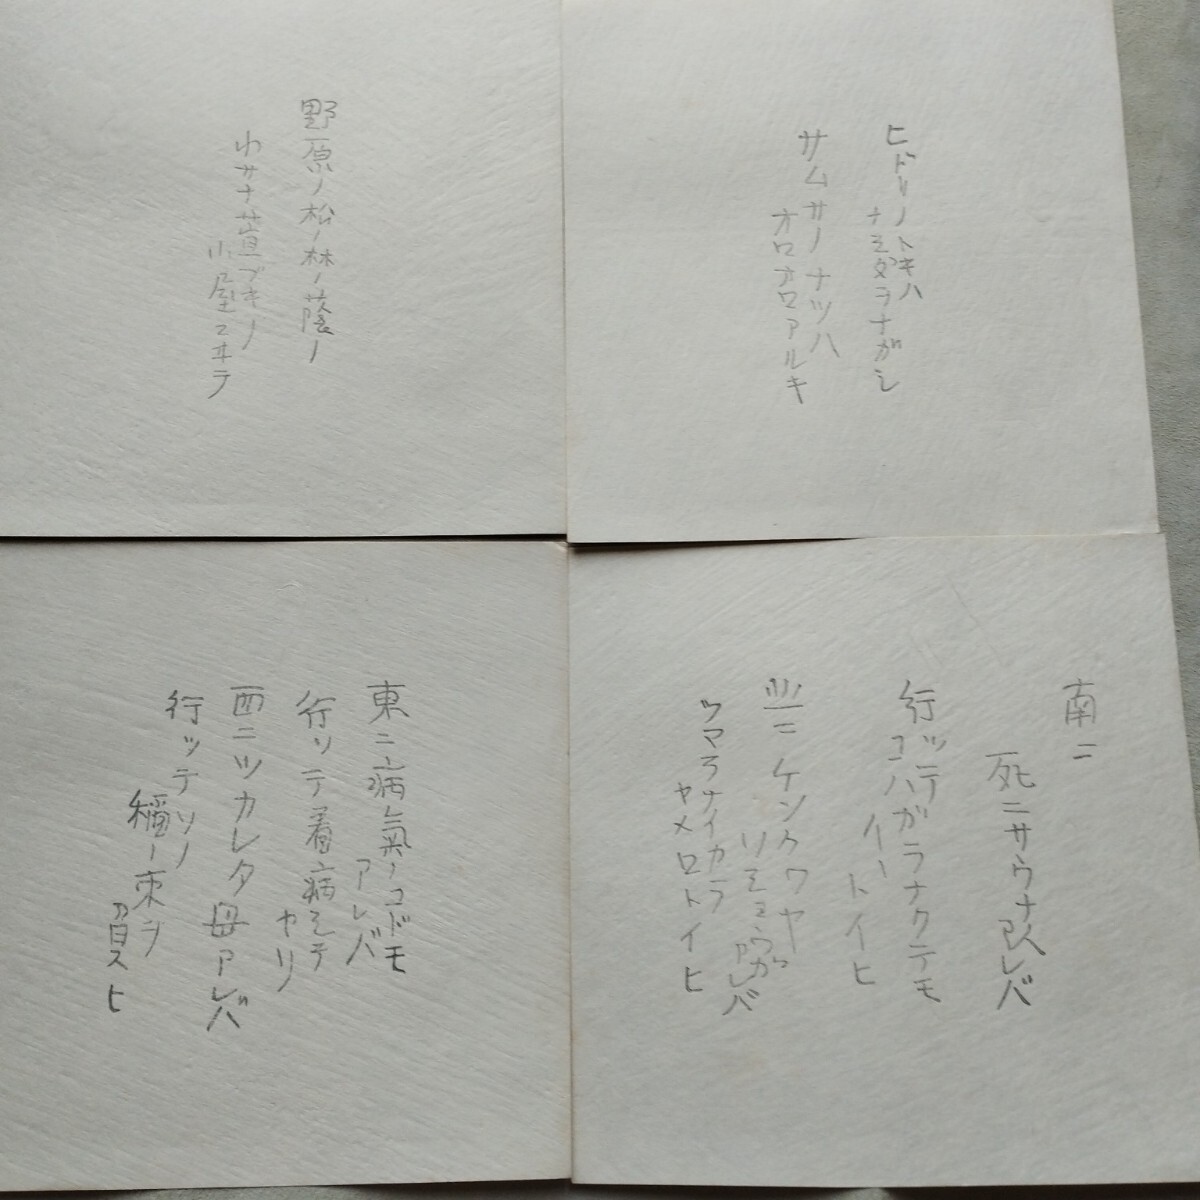 野原ノ松ノ林ノ蔭ノ
小サナ萓ブキノ
小屋ニヰテ
ヒドリノトキハ
ナミダヲナガシ
サムサノナツハ
オロオロアルキ
東ニ病氣ノコドモ
アレバ
行ッテ看病シテ
ヤリ
西ニツカレタ母アレバ
行ッテソノ
稲ノ束ヲ
負ヒ
南ニ
死ニサウナ人アレバ
行ッテコハガラナクテモ
イヽトイヒ
北ニケンクヮヤ
ソショウガ
アレバ
ツマラナイカラ
ヤメロトイヒ